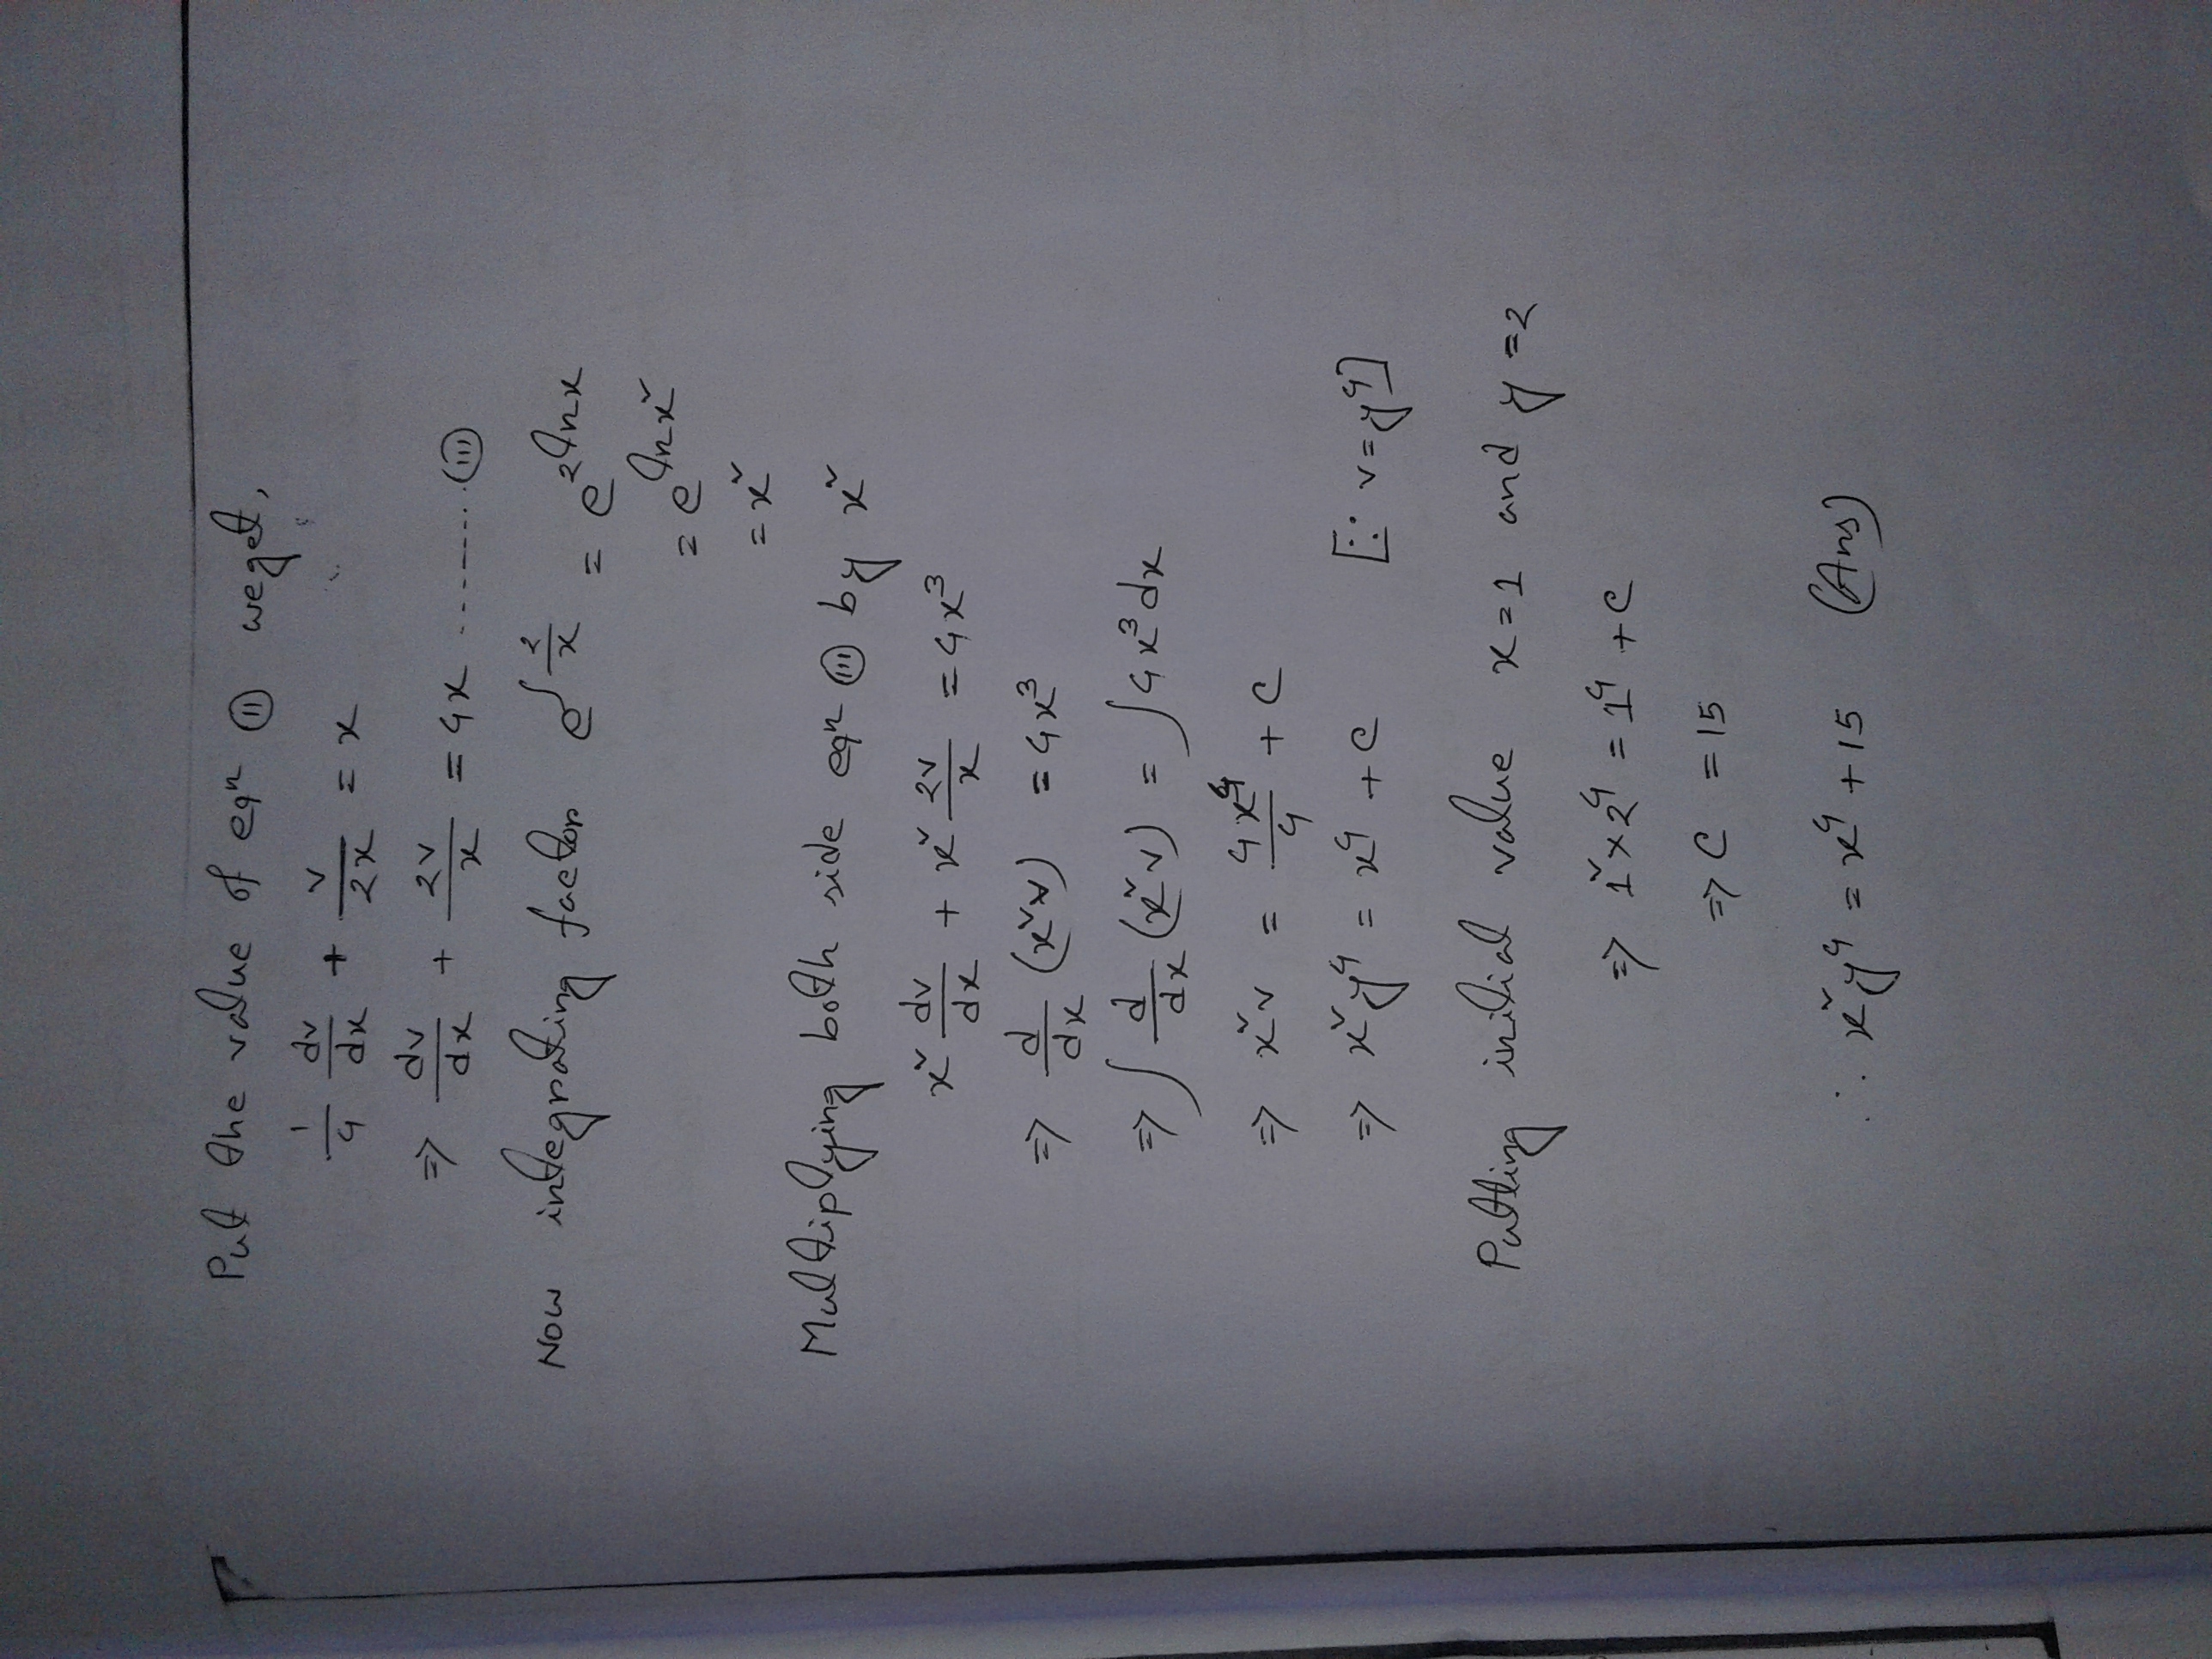 Put the value of eqⁿ (ii) we get,
1/4 dv/dx + v/2x = x
⇒ dv/dx + 2v/x = 4x ......... (iii)
Now integrating factor e^∫2/x = e^2lnx
= e^lnx²
= x²
Multiplying both side eqⁿ (iii) by x²
x² dv/dx + x² 2v/x = 4x³
⇒ d/dx (x²v) = 4x³
⇒ ∫ d/dx (x²v) = ∫4x³dx
⇒ x²v = 4x⁴/4 + c
⇒ x²y⁴ = x⁴ + c [∵ v = y⁴]
Putting initial value x=1 and y=2
⇒ 1²×2⁴ = 1⁴ + c
⇒ C = 15
∴ x²y⁴ = x⁴ + 15 (Ans)